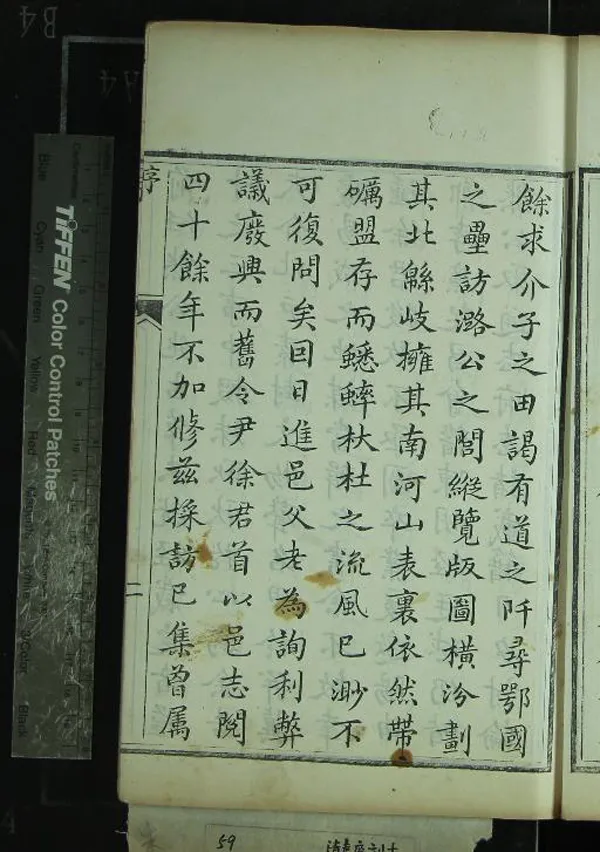 餘求介子之田謁有道之阡尋鄂國
之壘訪潞公之閭縱覽版圖橫汾劃
其北緜岐擁其南河山表裏依然帶
礪盟存而蟋蟀杕杜之流風已渺不
可復問矣囙日進邑父老為詢利弊
議廢興而舊令尹徐君首以邑志閱
四十餘年不加修茲採訪已集曾属
序
二
TIFFEN Color Control Patches
Blue
Cyan
Green
Yellow
Red
Magenta
White
3/Color
Black
B4
A4
59